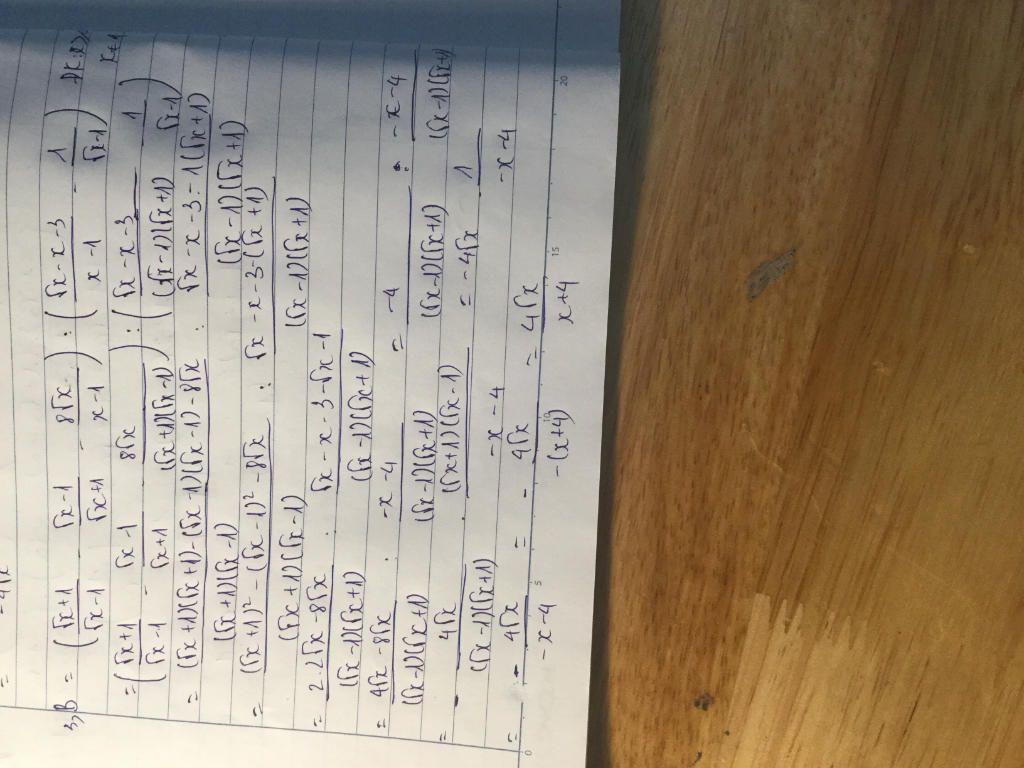 = -4√x
3, B = ( (√x+1)/(√x-1) - (√x-1)/(√x+1) - 8√x/(x-1) ) : ( (√x-x-3)/(x-1) - 1/(√x-1) )
= ( (√x+1)/(√x-1) - (√x-1)/(√x+1) - 8√x/((√x+1)(√x-1)) ) : ( (√x-x-3)/((√x-1)(√x+1)) - 1/(√x-1) )
= ((√x+1)(√x+1)-(√x-1)(√x-1)-8√x)/((√x+1)(√x-1)) : (√x-x-3-1(√x+1))/((√x-1)(√x+1))
= ((√x+1)²-(√x-1)²-8√x)/((√x+1)(√x-1)) : (√x-x-3-(√x+1))/((√x-1)(√x+1))
= (2.2√x-8√x)/((√x-1)(√x+1)) : (√x-x-3-√x-1)/((√x-1)(√x+1))
= (4√x-8√x)/((√x-1)(√x+1)) : (-x-4)/((√x-1)(√x+1)) = -4/((√x-1)(√x+1)) : (-x-4)/((√x-1)(√x+1))
= - 4√x/((√x-1)(√x+1)) . ((√x+1)(√x-1))/(-x-4) = -4√x 1/(-x-4)
= - 4√x/(-x-4) = - 4√x/(-(x+4)) = 4√x/(x+4)
0 5 10 15 20